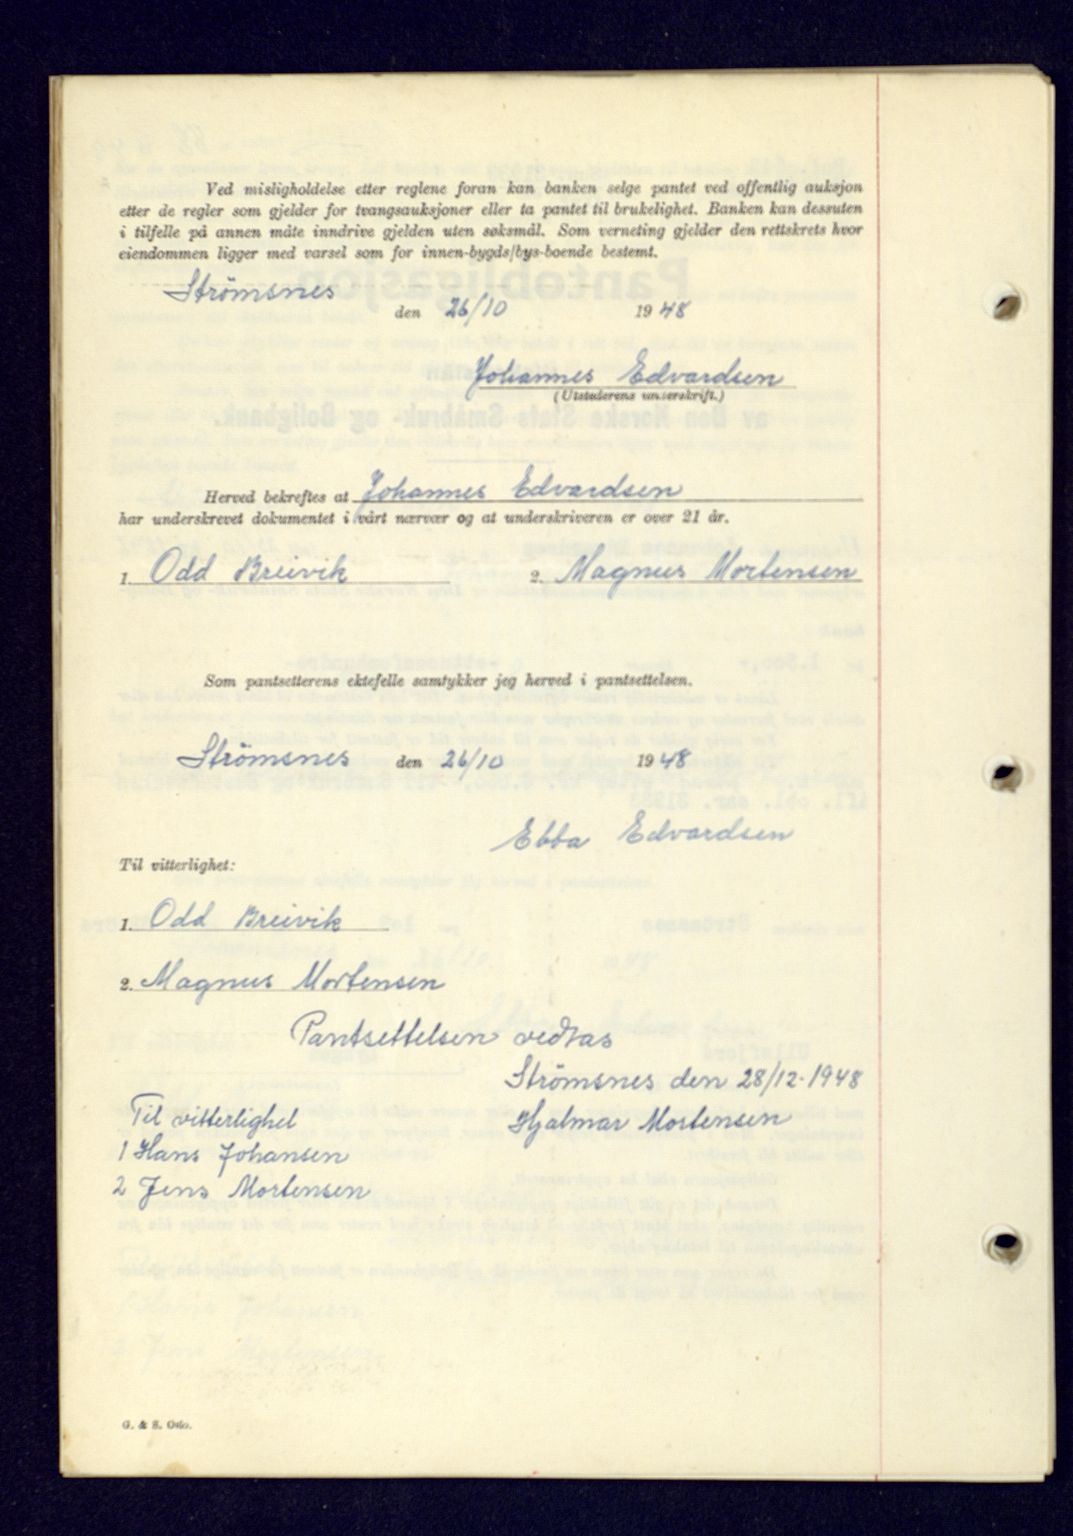 Ved misligholdelse etter reglene foran kan banken selge pantet ved offentlig auksjon
etter de regler som gjelder for tvangsauksjoner eller ta pantet til brukelighet. Banken kan dessuten
i tilfelle på annen måte inndrive gjelden uten søksmål. Som verneting gjelder den rettskrets hvor
eiendommen ligger med varsel som for innen-bygds/bys-boende bestemt.
Strömsnes den 26/10 1948
Johannes Edvardsen
(Utstederens underskrift.)
Herved bekreftes at Johannes Edvardsen
har underskrevet dokumentet i vårt nærvær og at underskriveren er over 21 år.
1. Odd Breivik 2. Magnus Mortensen
Som pantsetterens ektefelle samtykker jeg herved i pantsettelsen.
Strömsnes den 26/10 1948
Ebba Edvardsen
Til vitterlighet:
1. Odd Breivik
2. Magnus Mortensen
Pantsettelsen vedtas
Strömsnes den 28/12-1948
Til vitterlighet Hjalmar Mortensen
1 Hans Johansen
2 Jens Mortensen
G. & S. Oslo.